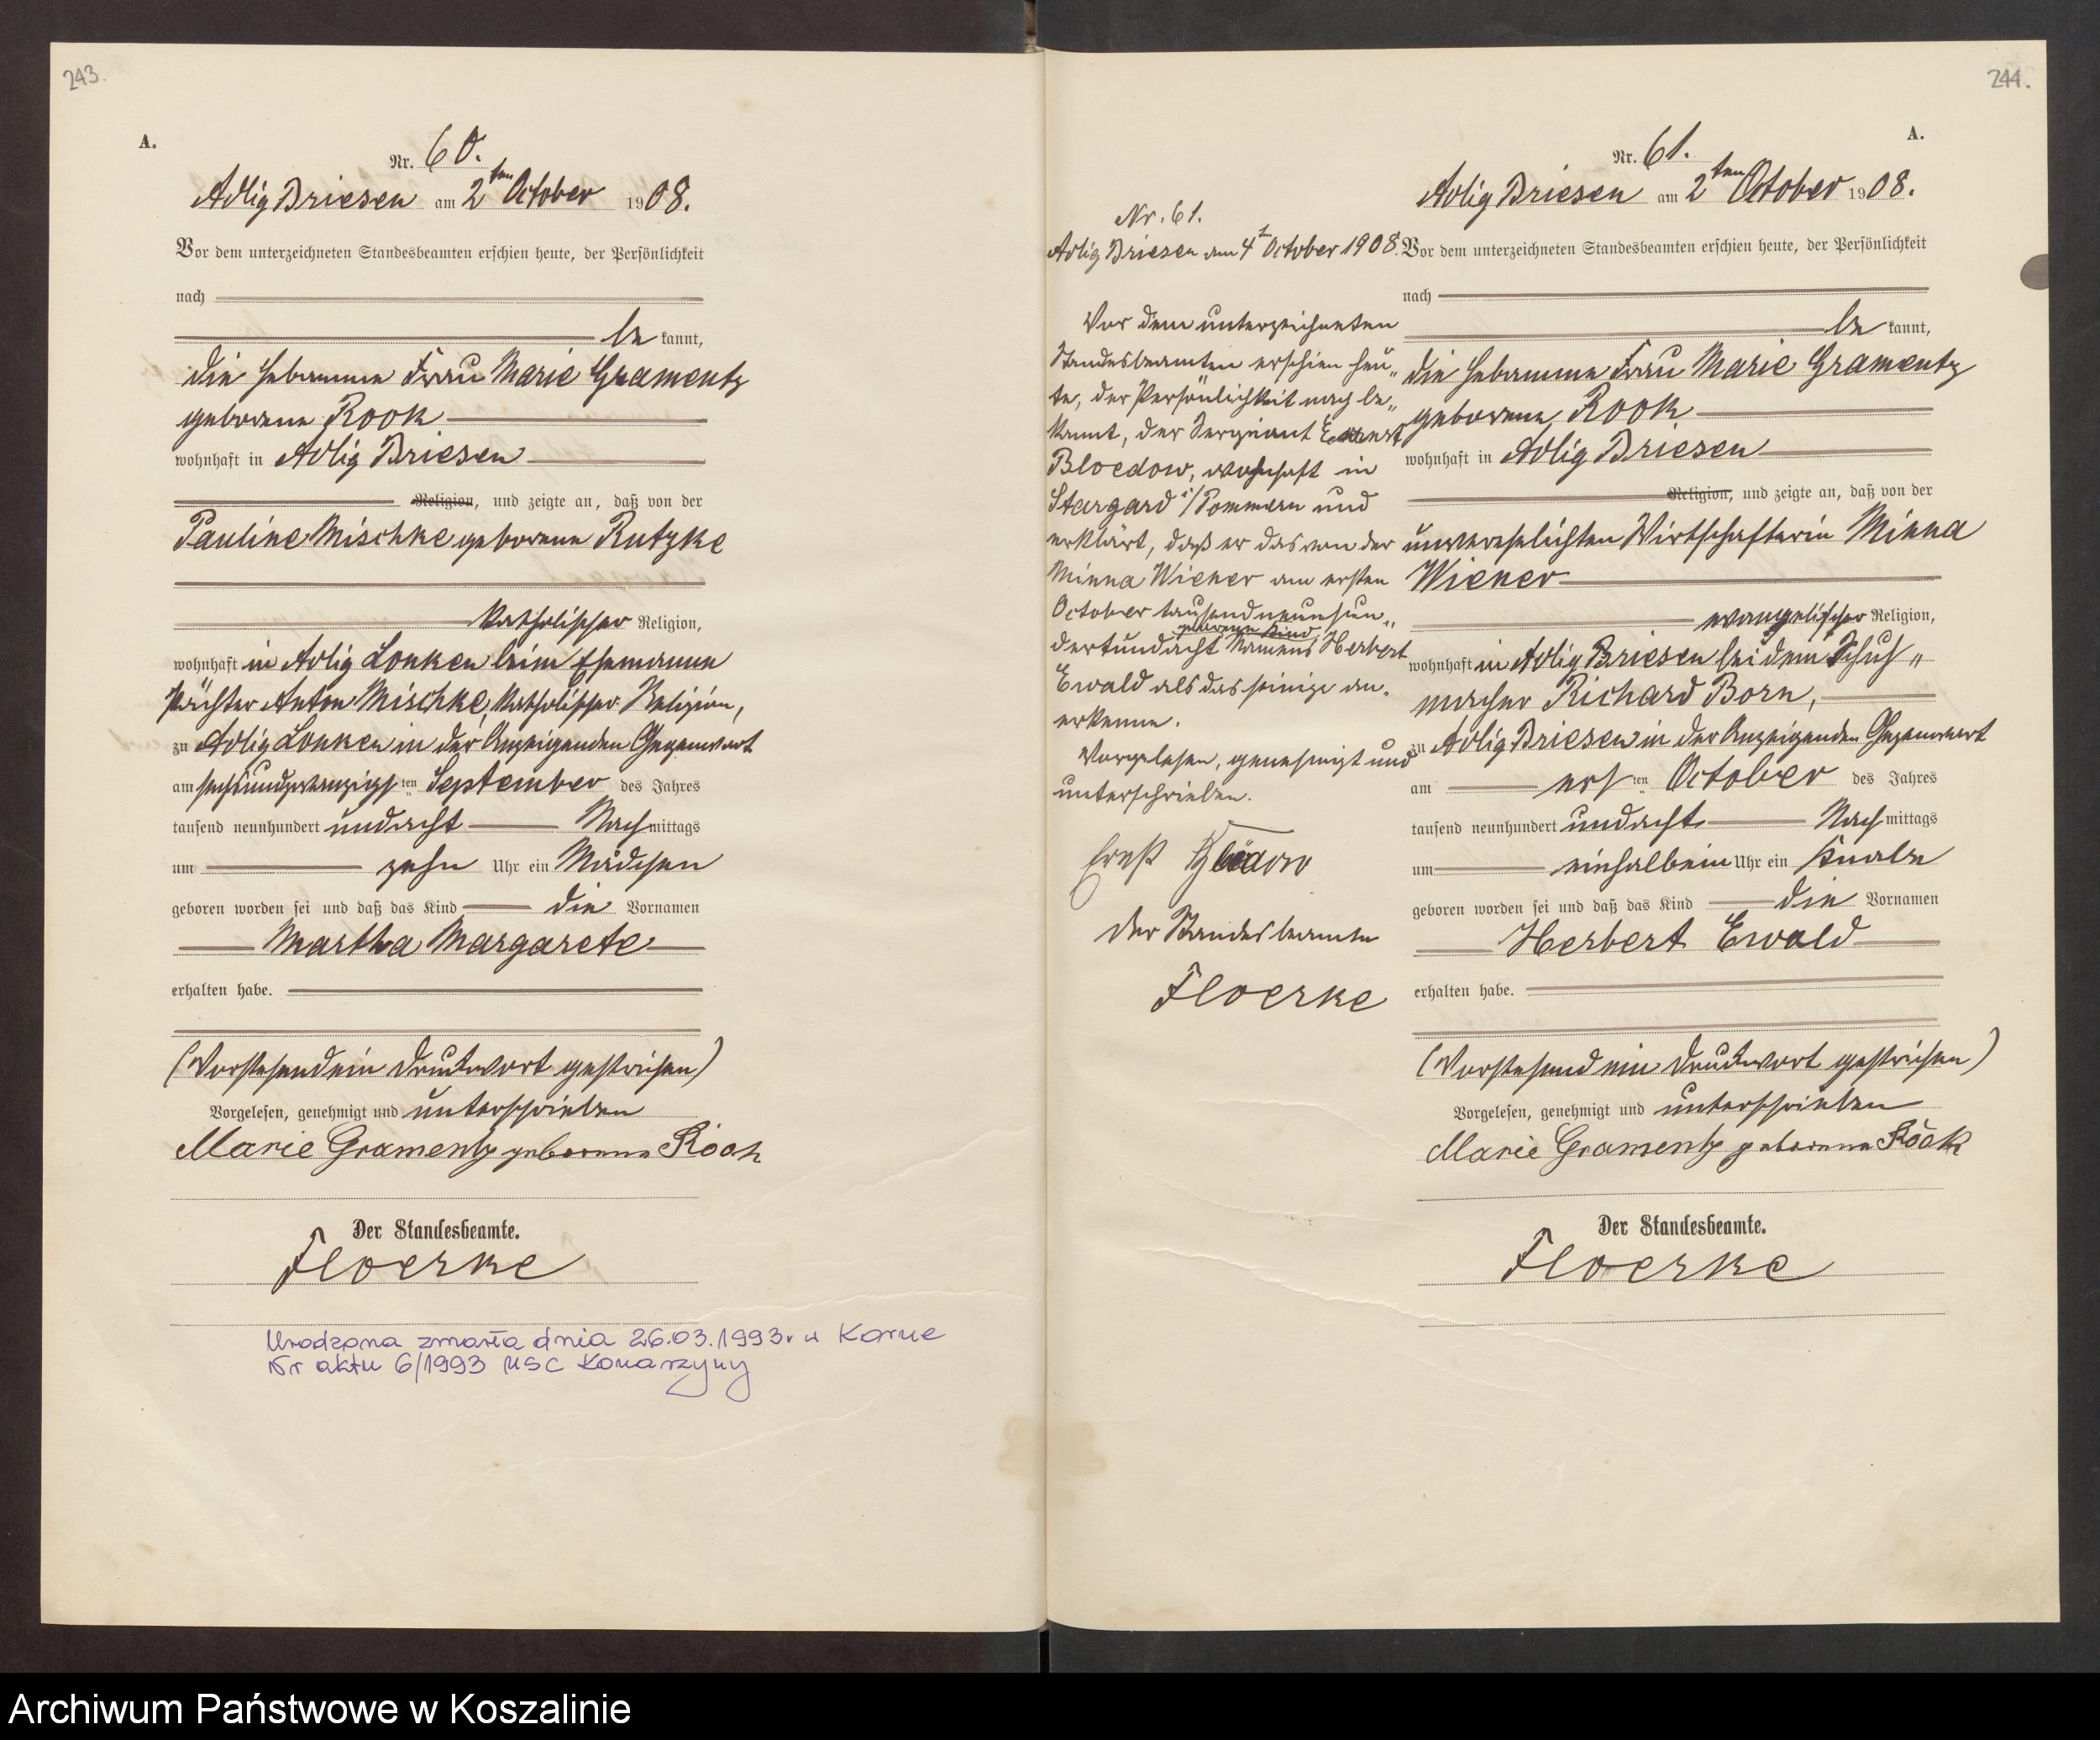 243.
A.
Nr. 60.
Adlig Briesen am 2ten October 1908.
Vor dem unterzeichneten Standesbeamten erschien heute, der Persönlichkeit
nach
be kannt,
die Hebamme Frau Marie Gramentz
geborene Rook
wohnhaft in Adlig Briesen
Religion, und zeigte an, daß von der
Pauline Mischke geborene Rutzke
katholischer Religion,
wohnhaft in Adlig Lonken beim Ehemanne
Pächter Anton Mischke, katholischer Religion,
zu Adlig Lonken in der Anzeigenden Gegenwart
am sechsundzwanzigsten September des Jahres
tausend neunhundert undacht Nachmittags
um zehn Uhr ein Mädchen
geboren worden sei und daß das Kind die Vornamen
Martha Margarete
erhalten habe.
(Vorstehend ein Druckwort gestrichen)
Vorgelesen, genehmigt und unterschrieben
Marie Gramentz geborene Rook
Der Standesbeamte.
Floerke
Urodzona zmarła dnia 26.03.1993r w Korne
Nr aktu 6/1993 USC Konarzyny
Nr. 61.
Adlig Briesen am 4ten October 1908.
Vor dem unterzeichneten
Standesbeamten erschien heu„
te, der Persönlichkeit nach be„
kannt, der Sergeant Ernst
Bloedow, wohnhaft in
Stargard i/Pommern und
erklärt, daß er das von der
Minna Wiener am ersten
October tausendneunhun„
geborene Kind
dertundacht Namens Herbert
Ewald als das seinige an„
erkenne.
Vorgelesen, genehmigt und
unterschrieben.
Ernst Bloedow
Der Standesbeamte
Floerke
244.
A.
Nr. 61.
Adlig Briesen am 2ten October 1908.
Vor dem unterzeichneten Standesbeamten erschien heute, der Persönlichkeit
nach
be kannt,
die Hebamme Frau Marie Gramentz
geborene Rook
wohnhaft in Adlig Briesen
Religion, und zeigte an, daß von der
unverehelichten Wirtschafterin Minna
Wiener
evangelischer Religion,
wohnhaft in Adlig Briesen bei dem Schuh„
macher Richard Born,
zu Adlig Briesen in der Anzeigenden Gegenwart
am ersten October des Jahres
tausend neunhundert undacht Nachmittags
um einhalbein Uhr ein Knabe
geboren worden sei und daß das Kind die Vornamen
Herbert Ewald
erhalten habe.
(Vorstehend ein Druckwort gestrichen)
Vorgelesen, genehmigt und unterschrieben
Marie Gramentz geborene Rook
Der Standesbeamte.
Floerke
Archiwum Państwowe w Koszalinie